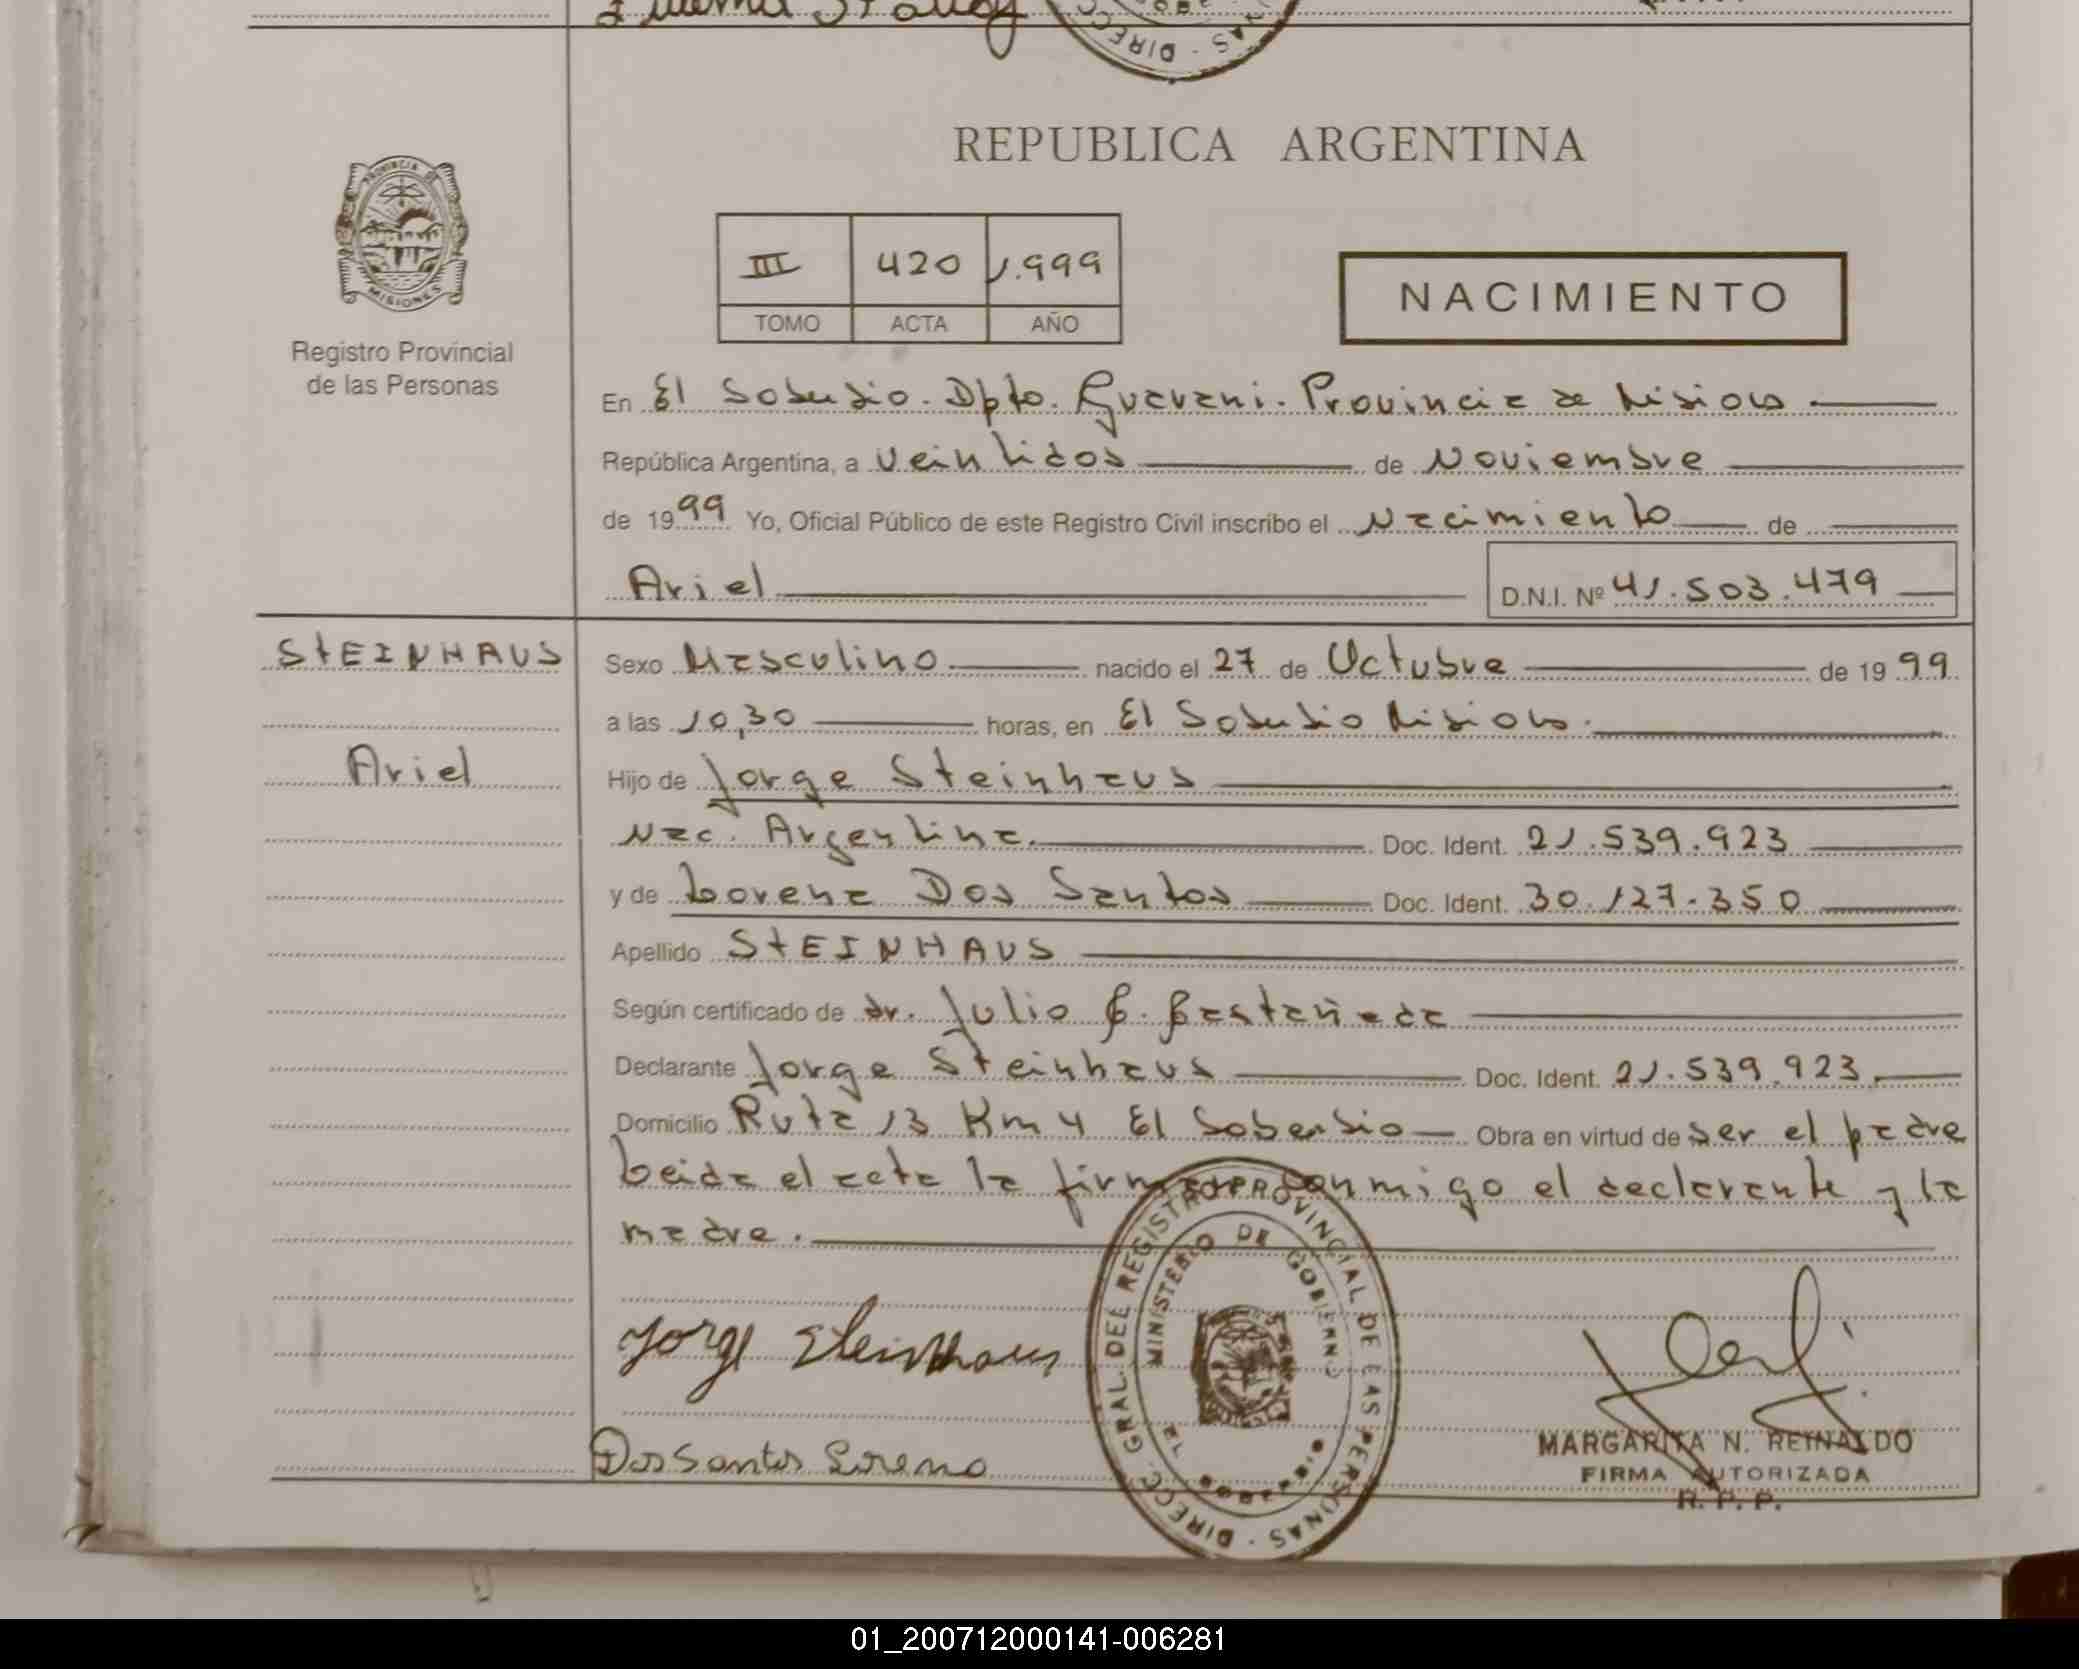 DIRECC
NAS
PROVINCIA DE
MISIONES
Registro Provincial
de las Personas
REPUBLICA ARGENTINA
III 420 1.999
TOMO ACTA AÑO
NACIMIENTO
En El Soberbio. Dpto. Guarani. Provincia de Misiones.
República Argentina, a veintidos de Noviembre
de 1999 Yo, Oficial Público de este Registro Civil inscribo el Nacimiento de
Ariel D.N.I. Nº 41.503.479
STEINHAUS
Ariel
Sexo Masculino nacido el 27 de Octubre de 1999
a las 10,30 horas, en El Soberbio Misiones.
Hijo de Jorge Steinhaus
Nac. Argentina. Doc. Ident. 21.539.923
y de Lorena Dos Santos Doc. Ident. 30.127.350
Apellido STEINHAUS
Según certificado de dr. Julio C. Castañeda
Declarante Jorge Steinhaus Doc. Ident. 21.539.923.
Domicilio Ruta 13 Km 4 El Soberbio Obra en virtud de ser el padre
Leida el acta la firman conmigo el declarante y la
madre.
Jorge Steinhaus
Dos Santos Lorena
DIRECC. GRAL. DEL REGISTRO PROVINCIAL DE LAS PERSONAS
MINISTERIO DE GOBIERNO
12
MARGARITA N. REINALDO
FIRMA AUTORIZADA
R. P. P.
01_200712000141-006281